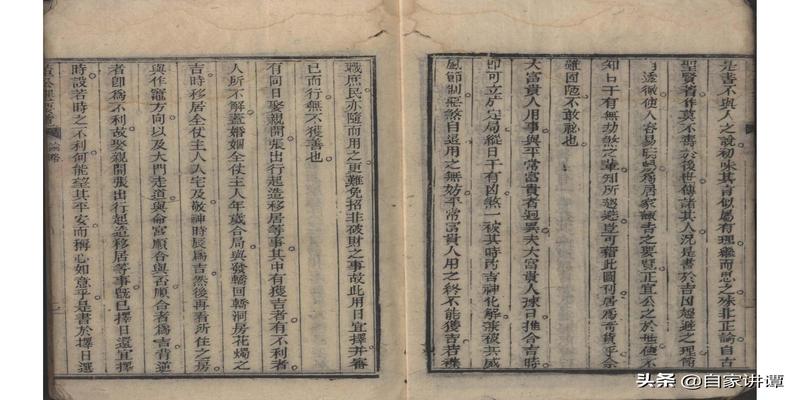 是書不與人之說初味其言似屬有理繼而思之殊非正論自古
聖賢著作莫不壽於後世傳諸其人況是書於吉凶趨避之理簡
透徹使人容易為居家諏吉之要覽正宜公之於世使不
知日干有無劫煞之輩知所趨避豈可藉此圖刊居為奇貨乎余
雖固陋不敢
大富貴人用事與平常富貴者迥異夫大富貴人擇日推合吉時
即可立定局縱日干有凶煞一被其時內吉神化解被其威
風節制惡煞自退用之無妨平常富貴人用之終不能獲吉若
職庶民亦隨而用之更難免招非破財之事故此用日宜擇并審
已而行無不獲善也
有同日娶親開張出行起造移居等事其中有獲吉者有不利者
人所不解蓋婚姻全仗主人年歲合局與發轎回轎洞房花燭之
吉時移居全仗主人入宅及敬神時辰為吉然後再看所住之房
與作竈方向以及大門走道與命宮順合與否順合者為吉背逆
者即為不利故娶親開張出行起造移居等事既已擇日還宜擇
時設若時之不利何能望其平安而稱心如意乎是書於擇日選
論略
头条 @自家讲谭